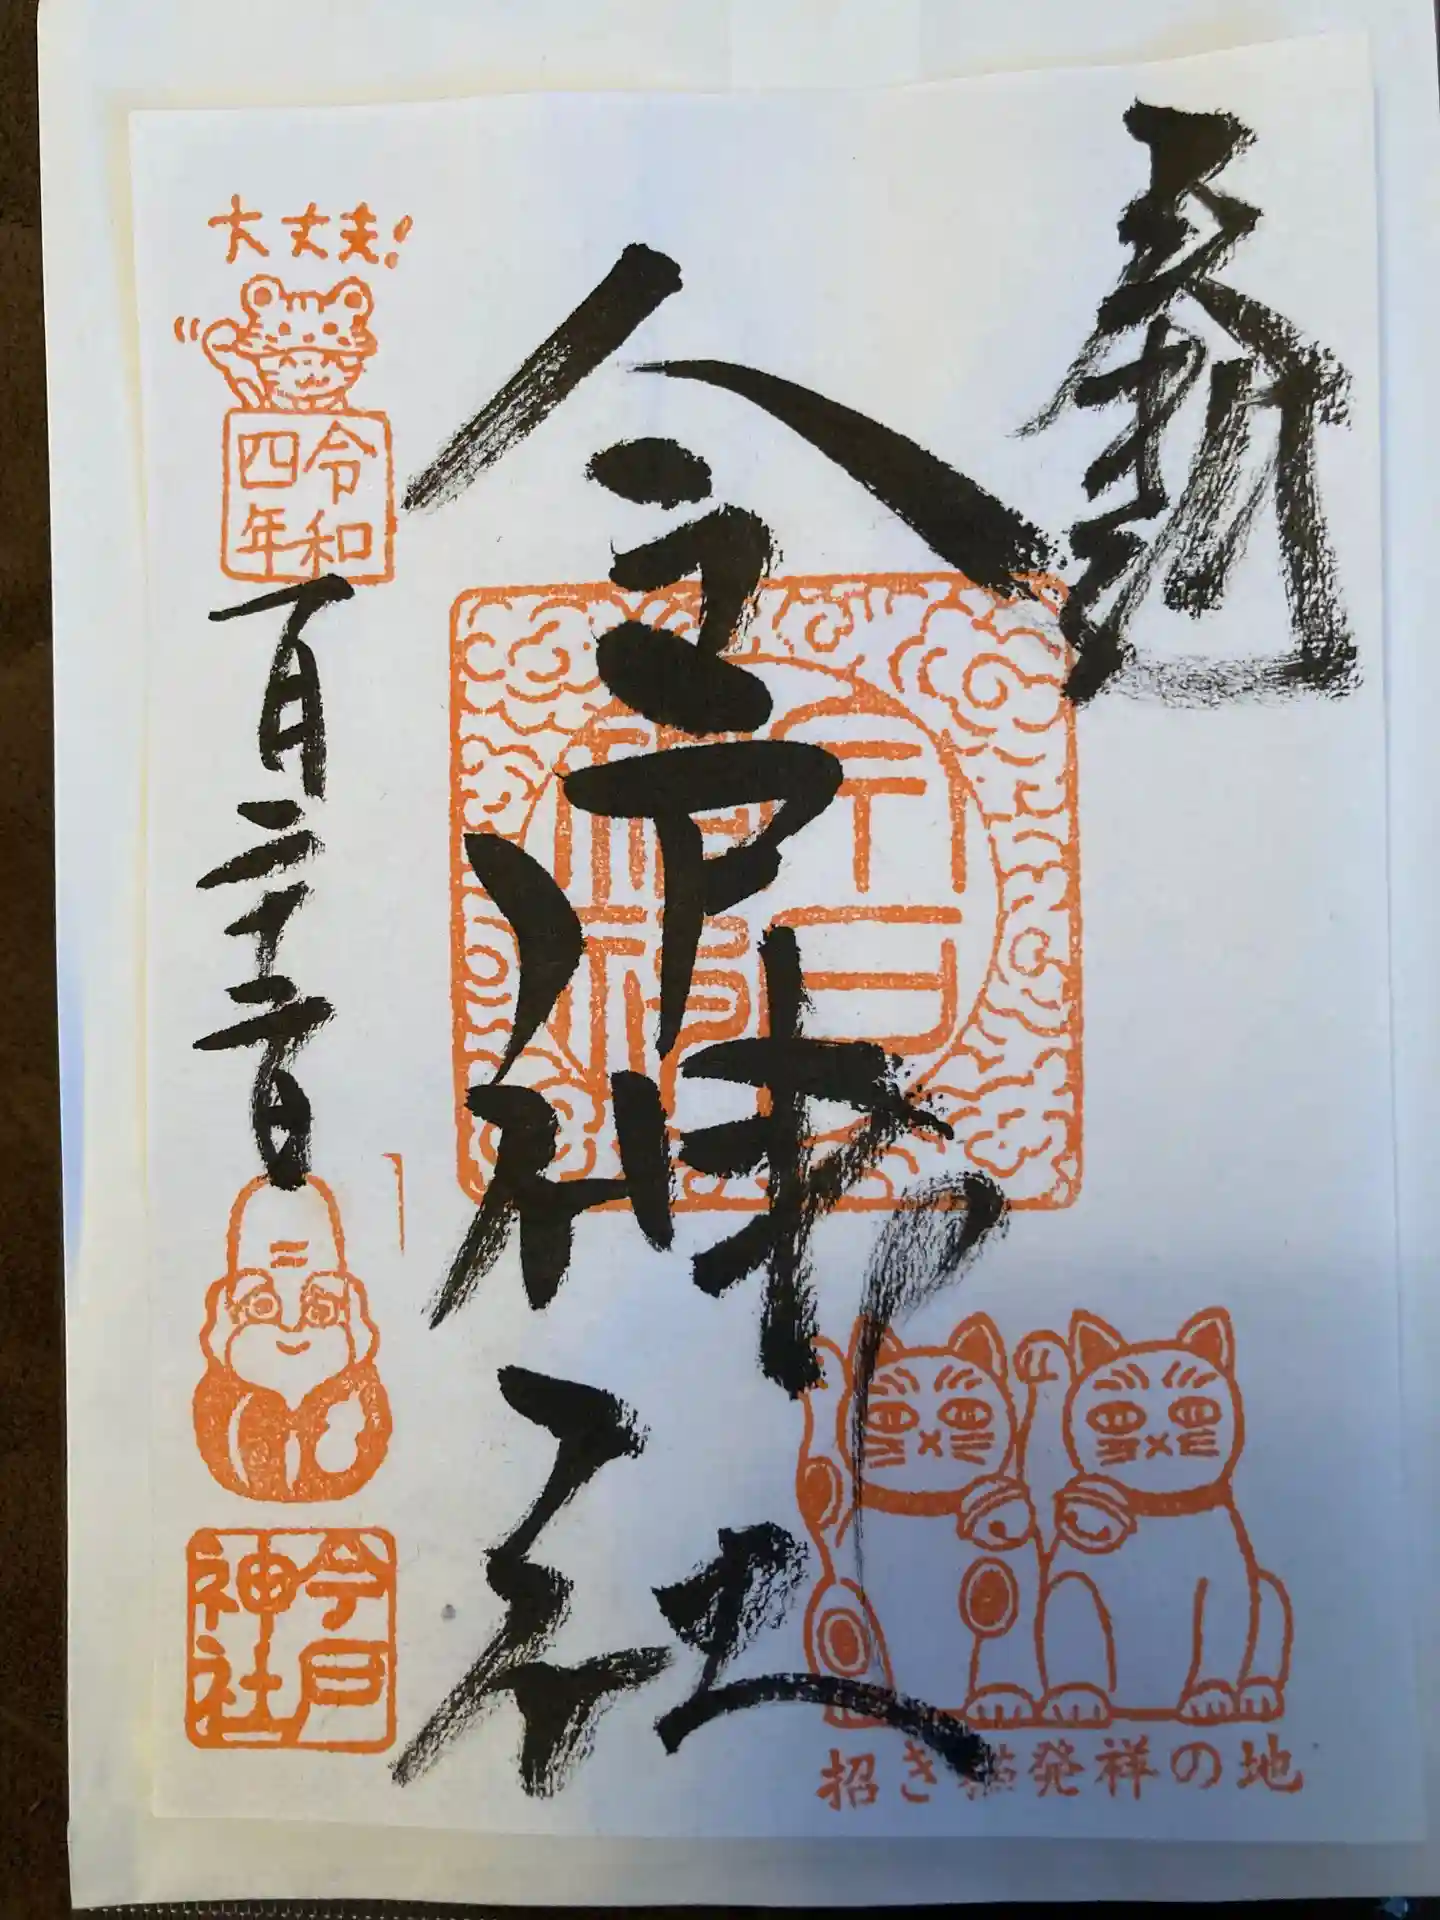 大丈夫!
令和四年
一月二十二日
今戸神社
今戸神社
招き猫発祥の地